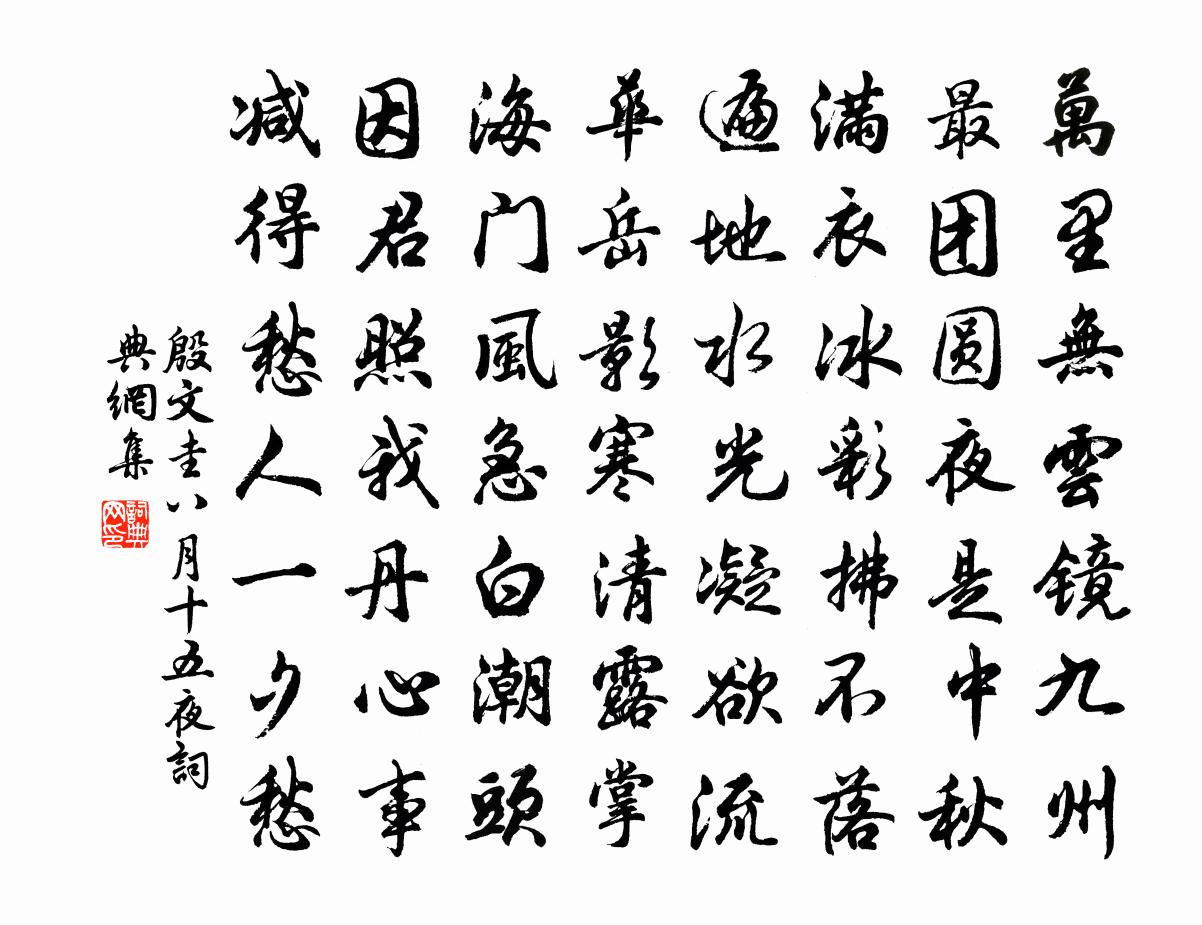 萬里無雲鏡九州
最团圆夜是中秋
满衣冰彩拂不落
遍地水光凝欲流
華岳影寒清露掌
海门風急白潮頭
因君照我丹心事
减得愁人一夕愁
殷文圭八月十五夜詞
典網集
詞典
网印